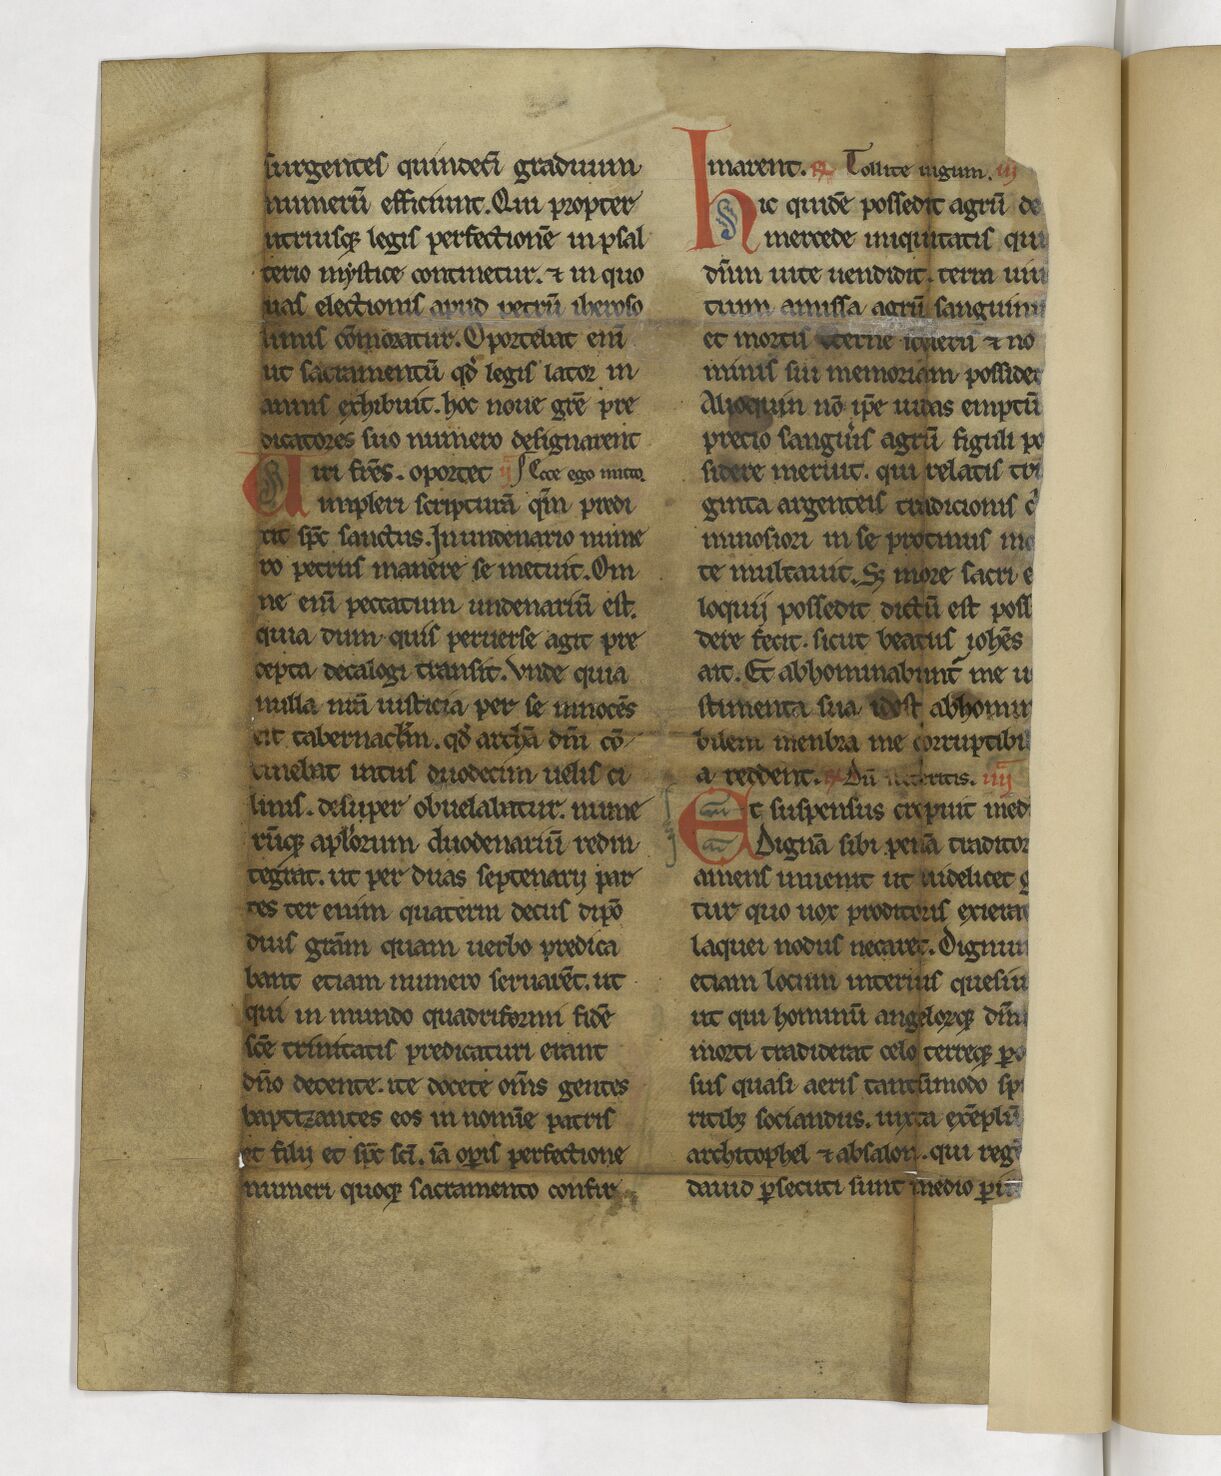 surgentes quindeci graduum
numerū efficiunt. Qui propter
utriusq; legis perfectionē in psal
terio mystice continetur. ⁊ in quo
uas electionis apud petrū iheroso
limis cōmoratur. Oportebat eni
ut sacramentū qd̓ legis lator in
annis exhibuit. hoc noue grē pre
dicatores suo numero designarent
Uiri frēs. oportet ij Ecce ego mitto.
impleri scripturā qm̄ predi
xit spc̄ sanctus. In undenario nume
ro petrus manere se metuit. Om
ne eni peccatum undenariū est.
quia dum quis peruerse agit pre
cepta decalogi transit. Vnde quia
nulla nrā iusticia per se innocēs
est tabernaclm̄. qd̓ archā dn̄i cō
tinebat intus duodecim uelis ci
linis. desuper obuelabatur. nume
rūq; aplōrum duodenariū redin
tegrat. ut per duas septenarij par
tes ter enim quaterni decus dipō
dius grām quam uerbo predica
bant etiam numero seruarēt. ut
qui in mundo quadriformi fidē
scē trinitatis predicaturi erant
dn̄o docente. ite docete om̄s gentes
baptizantes eos in nomīe patris
et filij et spc̄ scī. iā opis perfectione
numeri quoq; sacramento confir
marent. ℟ Tollite iugum. iij
hic quidē possedit agrū de
mercede iniquitatis qui
dn̄m uite uendidit. terra uiu
tium amissa agrū sanguinis
et mortis eterne et no
minis sui memoriam possidet
Alioquin nō ipe iudas emptū
precio sanguīs agrū figuli po
sidere meruit. qui relatis tri
ginta argenteis tradicionis c̓
minosiori in se protinus mo
te multauit. Sʒ more sacri e
loquij possedit dictū est poss
dere fecit. sicut beatus iohēs
ait. Et abhominabunt̄ me u
stimenta sua idest abhomin
bilem menbra me corruptibi
a reddent. ℟ Dū steteritis. iiij
Et suspensus crepuit med
Dignā sibi penā traditor
amens inuenit ut uidelicet g
tur quo uox proditoris exiera
laquei nodus necaret. Dignum
etiam locum interius quesiu
ut qui hominū angelorq; dn̄m
morti tradiderat celo terreq; po
sus quasi aeris tantūmodo spi
ritibʒ sociandus. iuxta exēplū
architophel ⁊ absalon. qui reg
dauid psecuti sunt medio pi